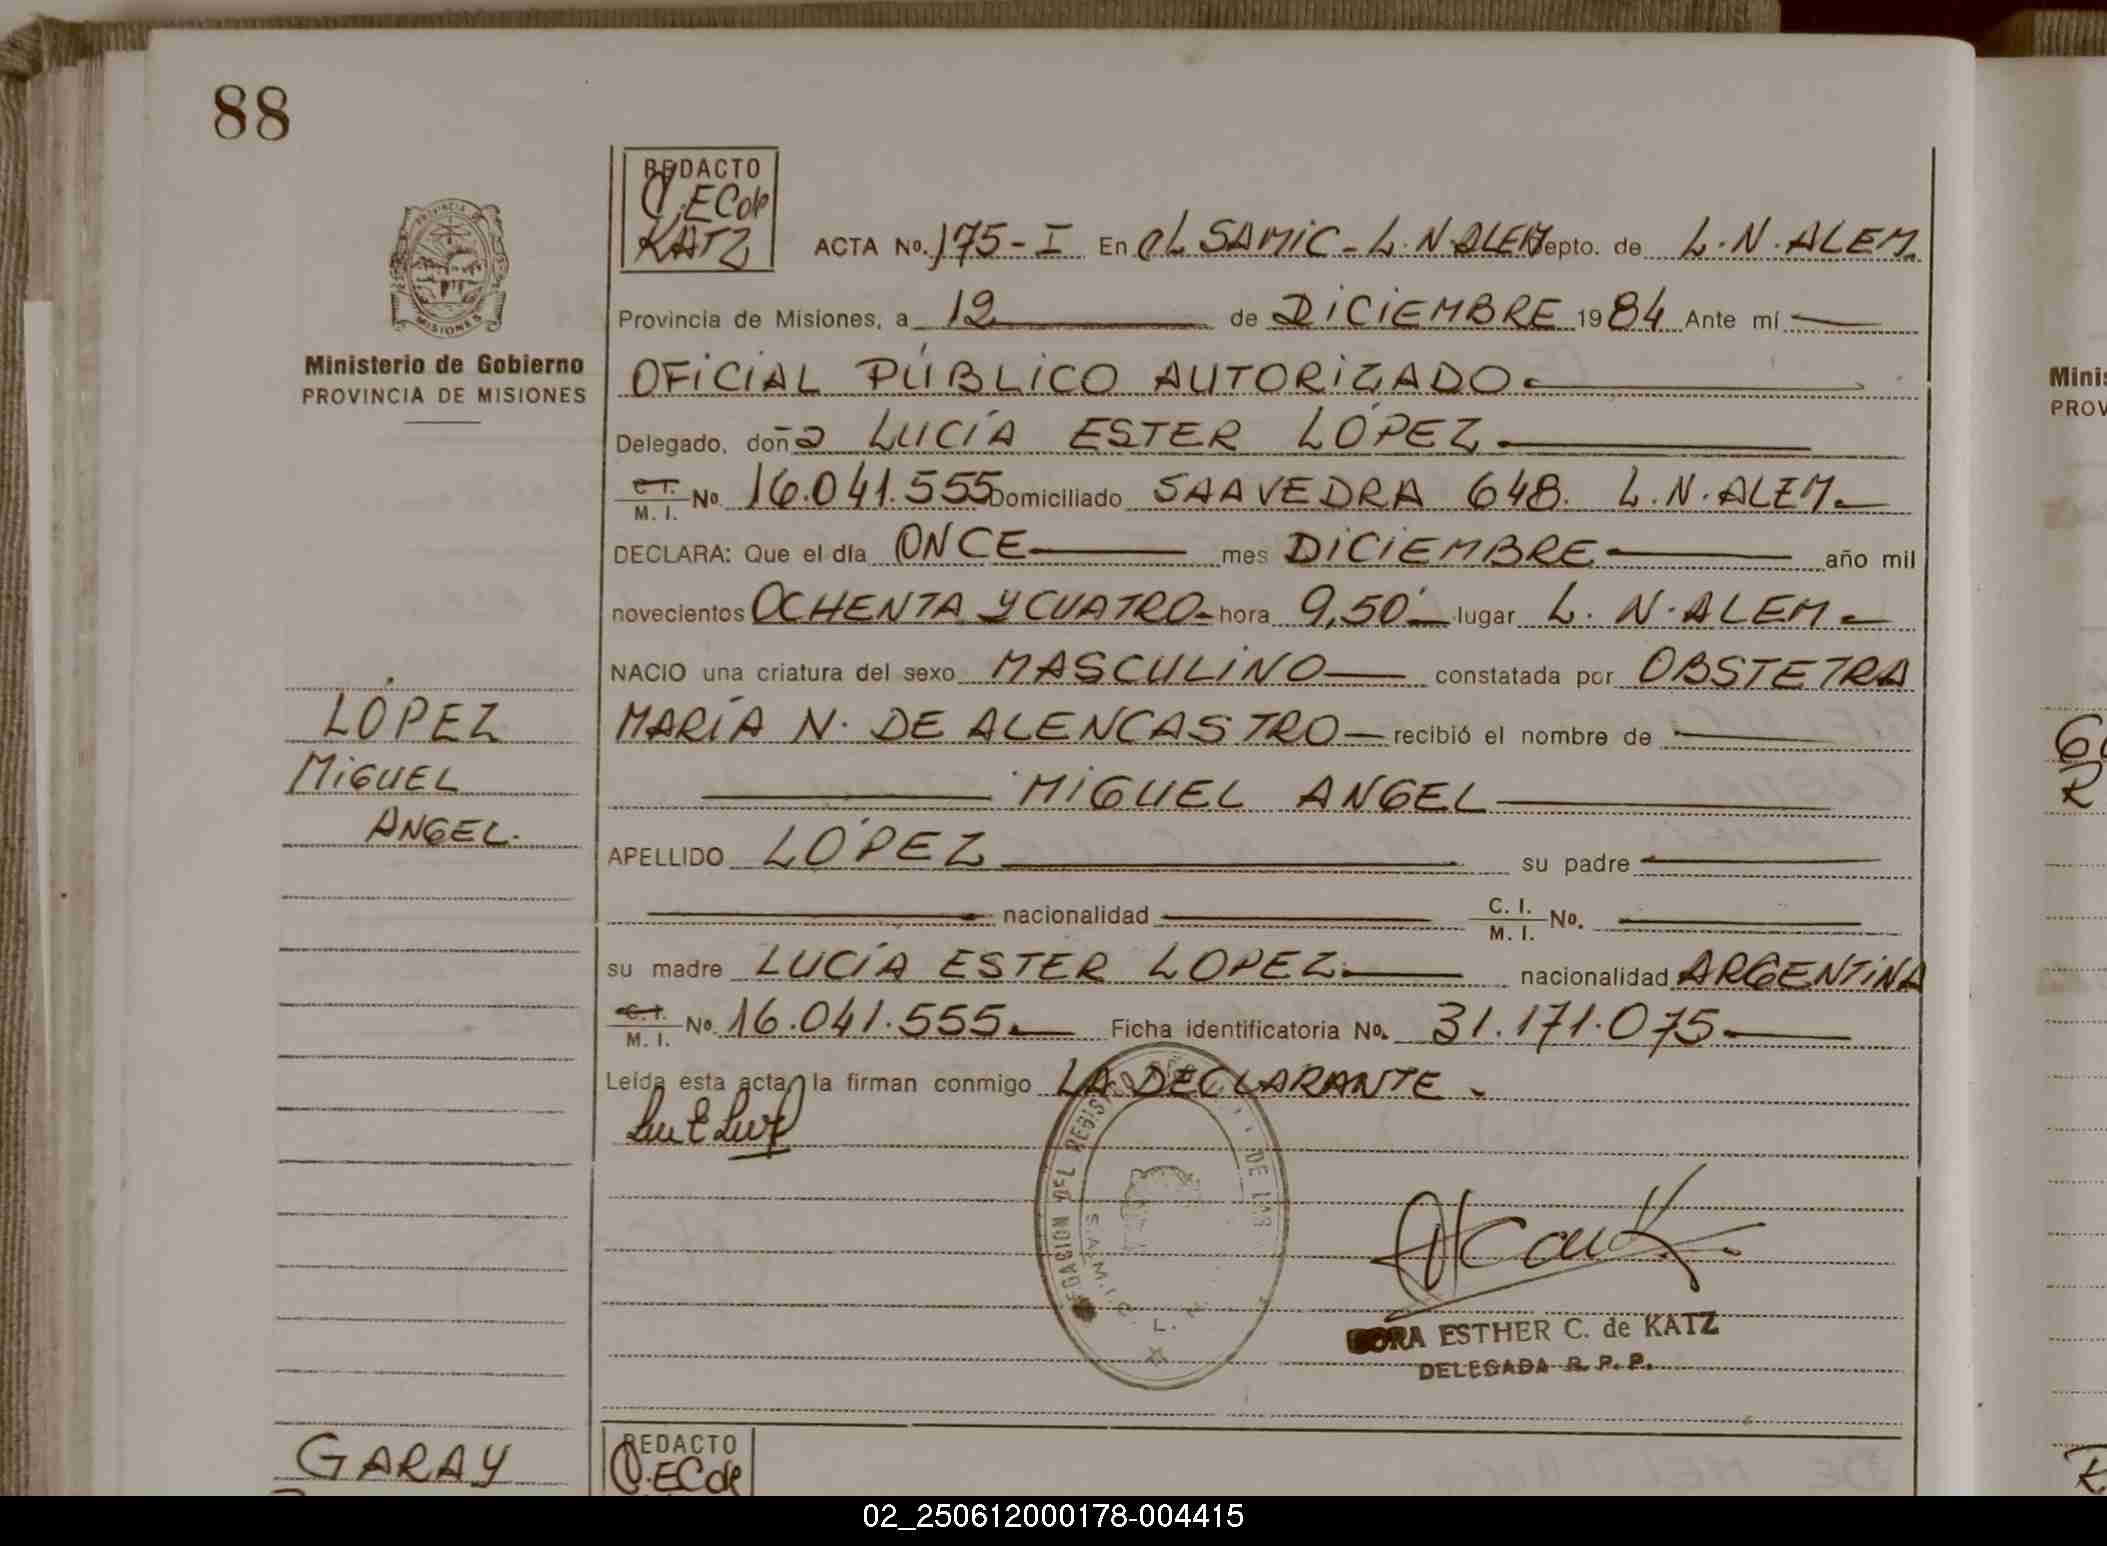 88
REDACTO
O.EC de
KATZ
ACTA No. 175-I En el SAMIC-L.N ALEM Depto. de L.N.ALEM.
PROVINCIA DE
MISIONES
Provincia de Misiones, a 12 de DICIEMBRE 1984 Ante mí
Ministerio de Gobierno
PROVINCIA DE MISIONES
OFICIAL PÚBLICO AUTORIZADO.
Delegado, doña LUCÍA ESTER LÓPEZ.
C.I. M. I. No. 16.041.555 Domiciliado SAAVEDRA 648. L.N.ALEM.
DECLARA: Que el día ONCE mes DICIEMBRE año mil
novecientos OCHENTA Y CUATRO hora 9,50' lugar L. N. ALEM.
NACIO una criatura del sexo MASCULINO constatada por OBSTETRA
LÓPEZ
MIGUEL
ANGEL.
MARÍA N. DE ALENCASTRO recibió el nombre de
MIGUEL ANGEL
APELLIDO LÓPEZ su padre
nacionalidad C. I. M. I. No.
su madre LUCÍA ESTER LOPEZ. nacionalidad ARGENTINA
C.I. M. I. No. 16.041.555. Ficha identificatoria No. 31.171.075.
Leída esta acta, la firman conmigo LA DECLARANTE.
DEL REGISTRO DE LAS
S.A.M.I.C. L. N.
DORA ESTHER C. de KATZ
DELEGADA R. P. P.
GARAY
REDACTO
O.EC de
Minis
PROV
G
R
R
02_250612000178-004415